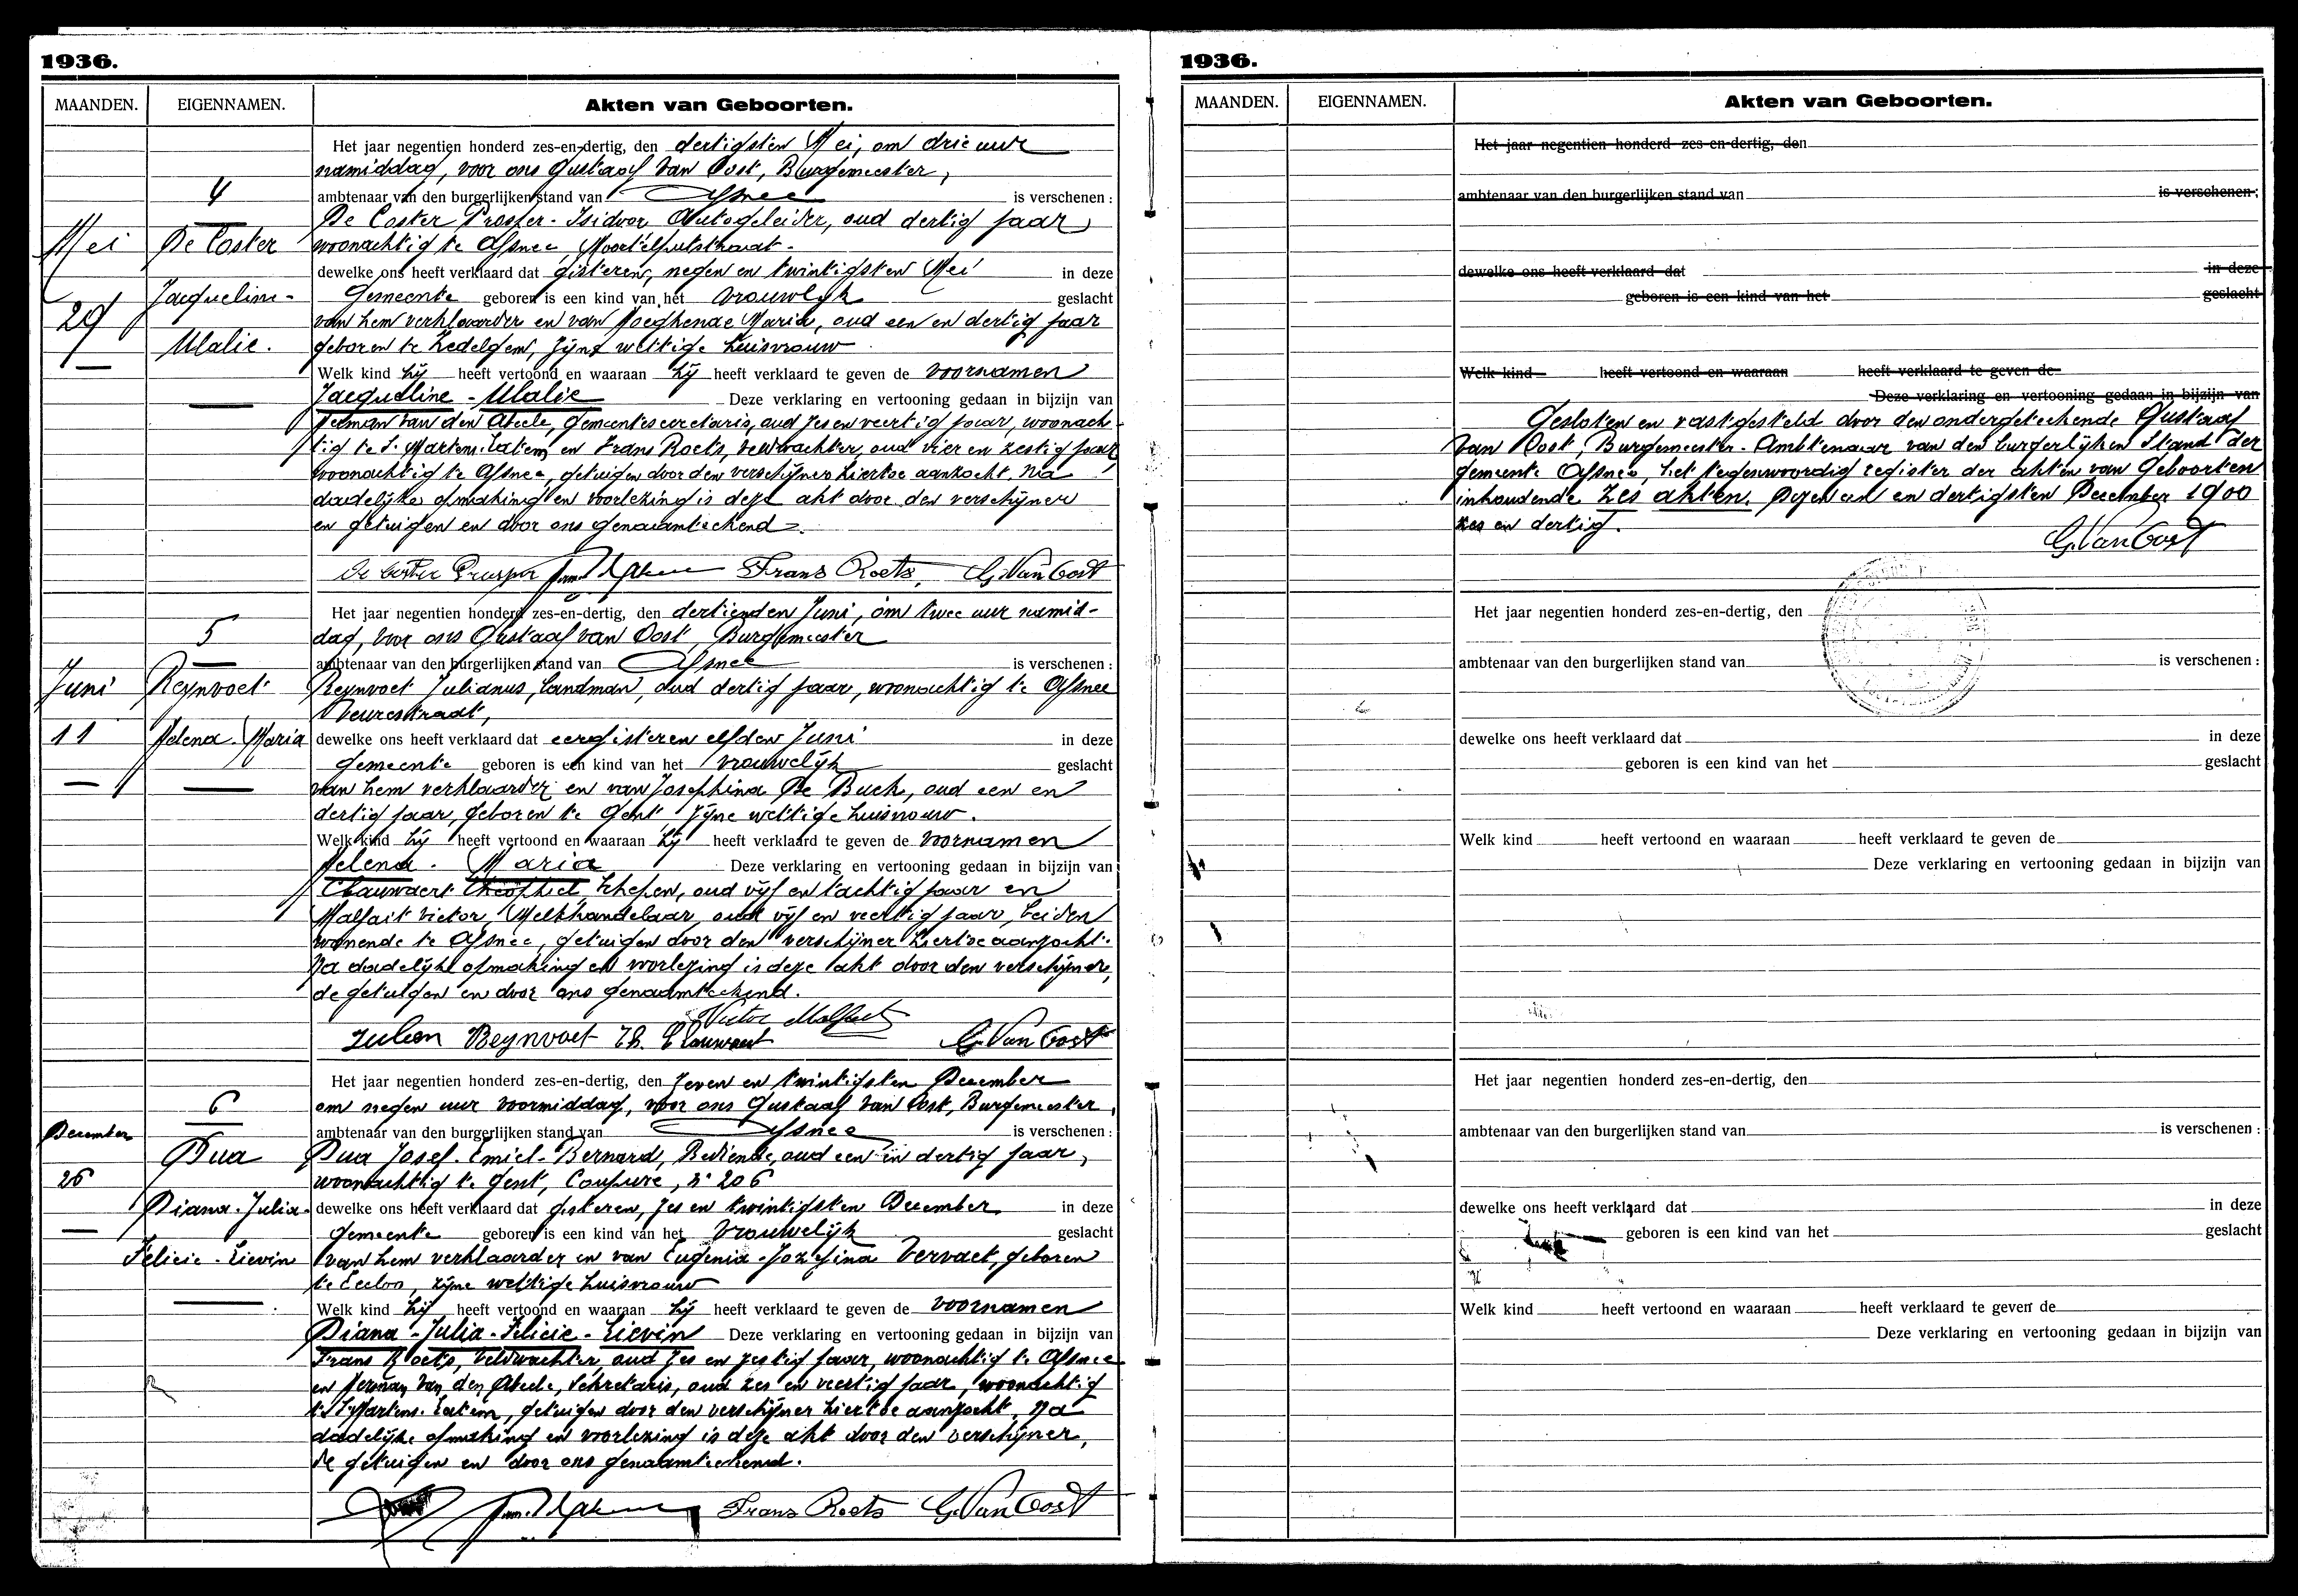 1936.
MAANDEN. EIGENNAMEN. Akten van Geboorten.
Het jaar negentien honderd zes-en-dertig, den dertigsten Mei, om drie uur
namiddag, voor ons Gustaaf Van Oost, Burgemeester,
4
ambtenaar van den burgerlijken stand van Afsnee is verschenen :
De Coster Prosper-Isidoor, Autogeleider, oud dertig jaar
Mei De Coster woonachtig te Afsnee, Moortelputstraat.
dewelke ons heeft verklaard dat gisteren, negen en twintigsten Mei in deze
Jacqueline- Gemeente geboren is een kind van het vrouwlijk geslacht
29 van hem verklaarder en van Maria, oud een en dertig jaar
Ulalie. geboren te Zedelgem, zijne wettige huisvrouw
Welk kind hij heeft vertoond en waaraan hij heeft verklaard te geven de voornamen
Jacqueline - Ulalie Deze verklaring en vertooning gedaan in bijzijn van
Herman Van den Abeele, Gemeentesecretaris, oud zes en veertig jaar, woonach-
tig te St Martens-Latem en Frans Roets, veldwachter, oud vier en zestig jaar
woonachtig te Afsnee, getuigen door den verschijner hiertoe aanzocht. Na
dadelijke opmaking en voorlezing is deze akt door den verschijner
en getuigen en door ons genaamteekend.
De Coster Prosper Frans Roets, G. Van Oost
Het jaar negentien honderd zes-en-dertig, den dertienden Juni, om twee uur namid-
5 dag, voor ons Gustaaf van Oost, Burgemeester
ambtenaar van den burgerlijken stand van Afsnee is verschenen :
Juni Reynvoet Reynvoet Julianus, Landman, oud dertig jaar, woonachtig te Afsnee
Veurestraat,
11 Helena-Maria dewelke ons heeft verklaard dat eergisteren elfden Juni in deze
gemeente geboren is een kind van het vrouwelijk geslacht
van hem verklaarder en van Josephina De Buck, oud een en
dertig jaar, geboren te Gent zijne wettige huisvrouw.
Welk kind hij heeft vertoond en waaraan hij heeft verklaard te geven de voornamen
Helena. Maria Deze verklaring en vertooning gedaan in bijzijn van
Clauwaert Theophiel, Schepen, oud vijf en tachtig jaar en
Malfait Victor, Melkhandelaar, oud vijf en veertig jaar, beiden
wonende te Afsnee, getuigen door den verschijner hiertoe aanzocht.
Na dadelijke opmaking en voorlezing is deze akt door den verschijner,
de getuigen en door ons genaamteekend.
Victor Malfait
Julien Reynvoet Th. Clauwaert G. Van Oost
Het jaar negentien honderd zes-en-dertig, den zeven en twintigsten December
6 om negen uur voormiddag, voor ons Gustaaf Van Oost, Burgemeester,
December ambtenaar van den burgerlijken stand van Afsnee is verschenen :
Dua Dua Josef-Emiel-Bernard, Bediende, oud een en dertig jaar,
26 woonachtig te Gent, Coupure, nr 206
Diana-Julia- dewelke ons heeft verklaard dat gisteren, zes en twintigsten December in deze
gemeente geboren is een kind van het vrouwelijk geslacht
Felicie-Lievin van hem verklaarder en van Eugenia-Jozefina Vervaet, geboren
te Eecloo, zijne wettige huisvrouw
Welk kind hij heeft vertoond en waaraan hij heeft verklaard te geven de voornamen
Diana-Julia-Felicie-Lievin Deze verklaring en vertooning gedaan in bijzijn van
Frans Roets, veldwachter, oud zes en zestig jaar, woonachtig te Afsnee
en Herman Van den Abeele, Sekretaris, oud zes en veertig jaar, woonachtig
te St Martens-Latem, getuigen door den verschijner hiertoe aanzocht. Na
dadelijke opmaking en voorlezing is deze akt door den verschijner,
de getuigen en door ons genaamteekend.
Frans Roets G. Van Oost
1936.
MAANDEN. EIGENNAMEN. Akten van Geboorten.
Het jaar negentien honderd zes-en-dertig, den
ambtenaar van den burgerlijken stand van is verschenen :
dewelke ons heeft verklaard dat in deze
geboren is een kind van het geslacht
Welk kind heeft vertoond en waaraan heeft verklaard te geven de
Deze verklaring en vertooning gedaan in bijzijn van
Gesloten en vastgesteld door den ondergeteekende Gustaaf
Van Oost, Burgemeester-Ambtenaar van den burgerlijken Stand der
gemeente Afsnee, het tegenwoordig register der akten van Geboorten
inhoudende zes akten. Dezen een en dertigsten December 1900
zes en dertig.
G. Van Oost
Het jaar negentien honderd zes-en-dertig, den
ambtenaar van den burgerlijken stand van is verschenen :
dewelke ons heeft verklaard dat in deze
geboren is een kind van het geslacht
Welk kind heeft vertoond en waaraan heeft verklaard te geven de
Deze verklaring en vertooning gedaan in bijzijn van
Het jaar negentien honderd zes-en-dertig, den
ambtenaar van den burgerlijken stand van is verschenen :
dewelke ons heeft verklaard dat in deze
geboren is een kind van het geslacht
Welk kind heeft vertoond en waaraan heeft verklaard te geven de
Deze verklaring en vertooning gedaan in bijzijn van